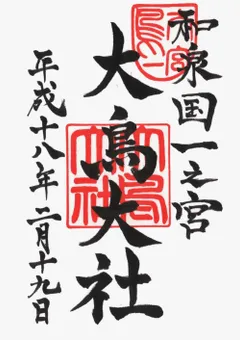 和泉国一之宮
大鳥大社
大鳥
大社
平成十八年二月十九日